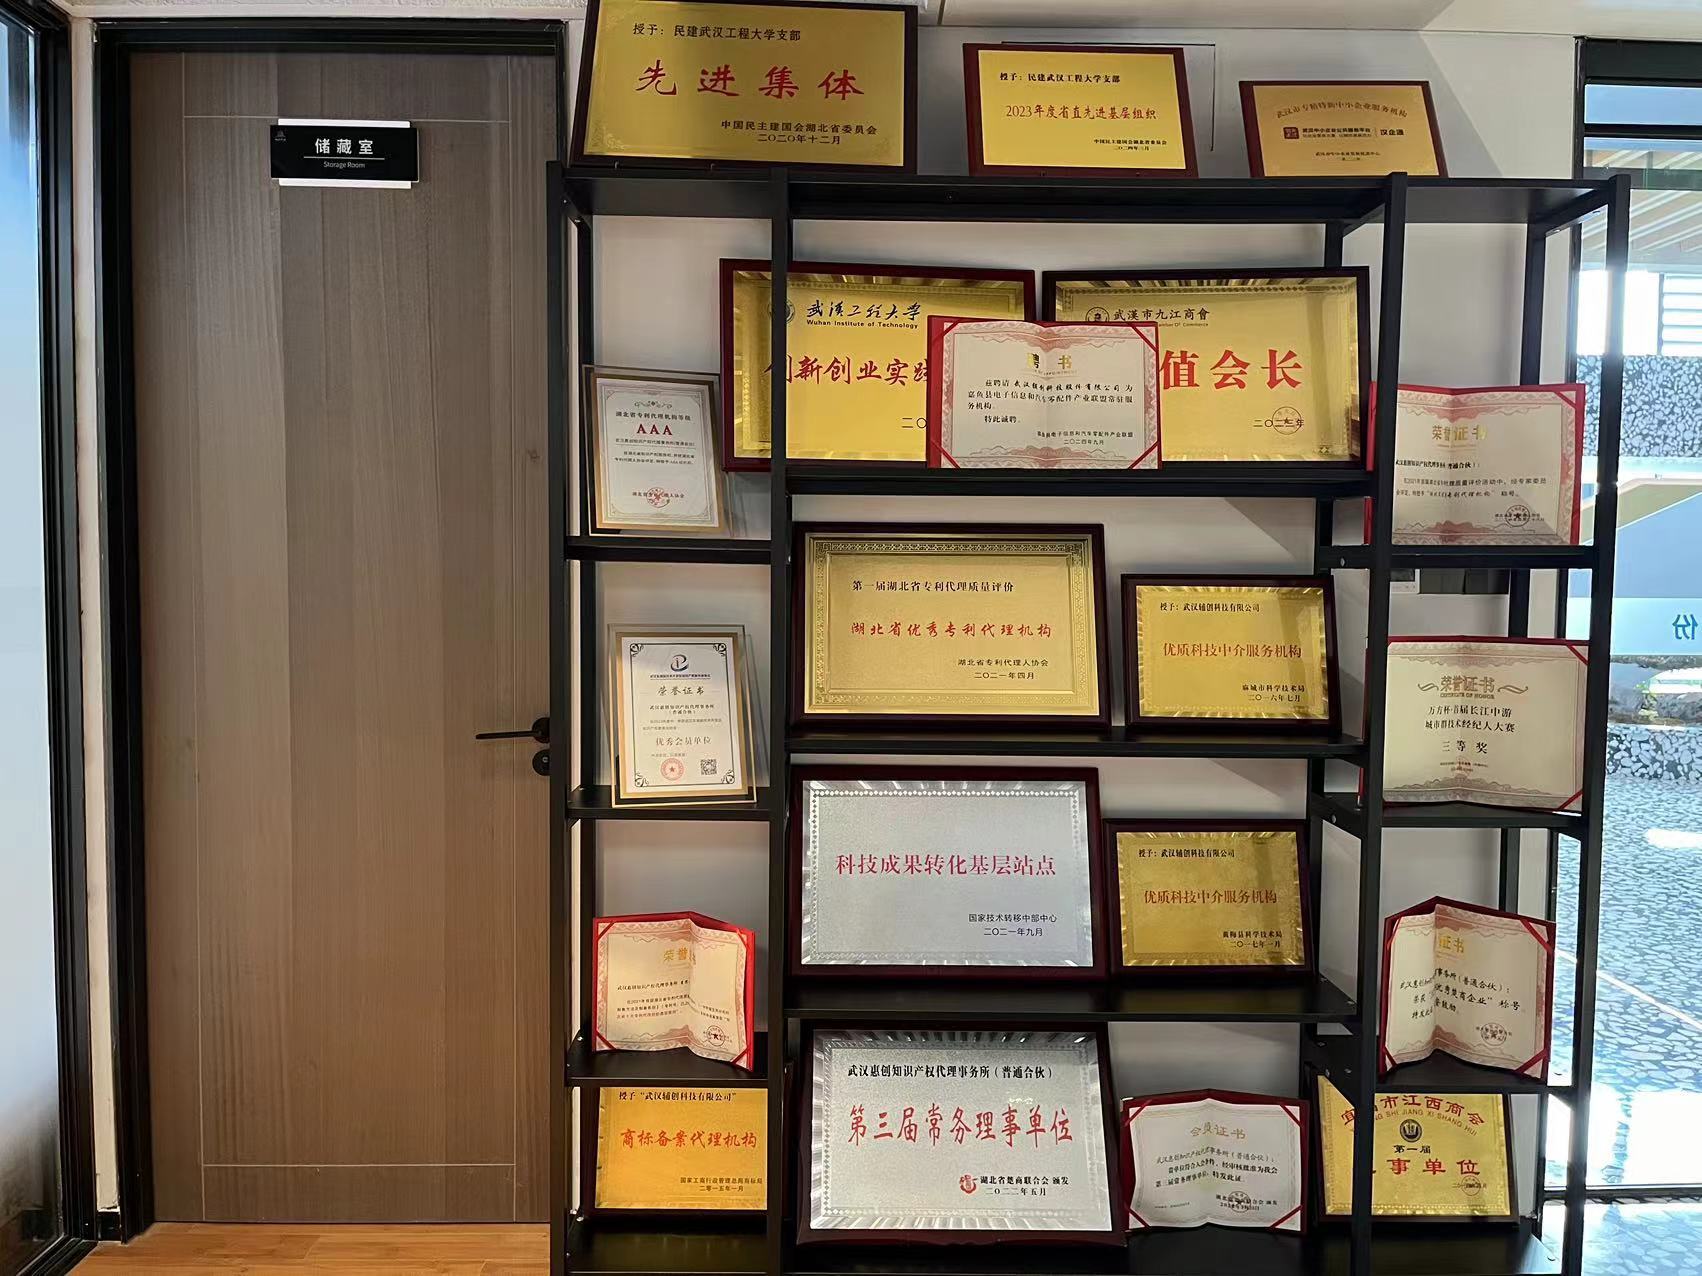 储藏室
Storage Room
授予：民建武汉工程大学支部
先进集体
中国民主建国会湖北省委员会
二〇二〇年十二月
授予：民建武汉工程大学支部
2023年度省直先进基层组织
中国民主建国会湖北省委员会
二〇二四年三月
武汉市专精特新中小企业服务机构
武汉中小企业公共服务平台
汉企通
武漢工程大学
Wuhan Institute of Technology
创新创业实践
二〇
武漢市九江商會
值会长
二〇二二年
聘 书
兹聘请 武汉辅创科技股份有限公司 为
嘉鱼县电子信息和汽车零配件产业联盟常驻服
务机构。
特此诚聘。
嘉鱼县电子信息和汽车零配件产业联盟
二〇二四年九月
湖北省专利代理机构等级
AAA
武汉惠创知识产权代理事务所(普通合伙)
湖北省专利代理人协会
荣誉证书
武汉惠创知识产权代理事务所（普通合伙）：
第一届湖北省专利代理质量评价
湖北省优秀专利代理机构
湖北省专利代理人协会
二〇二一年四月
授予：武汉辅创科技有限公司
优质科技中介服务机构
麻城市科学技术局
二〇一六年七月
荣誉证书
武汉惠创知识产权代理事务所
（普通合伙）
优秀会员单位
荣誉证书
CERTIFICATE OF HONOR
万方杯·首届长江中游
城市群技术经纪人大赛
三等奖
份
科技成果转化基层站点
国家技术转移中部中心
二〇二一年九月
授予：武汉辅创科技有限公司
优质科技中介服务机构
黄梅县科学技术局
二〇一七年一月
荣誉
武汉惠创知识产权代理事务所
证书
事务所（普通合伙）：
优秀楚商企业”称号
授予“武汉辅创科技有限公司”
商标备案代理机构
国家工商行政管理总局商标局
二零一五年一月
武汉惠创知识产权代理事务所（普通合伙）
第三届常务理事单位
湖北省楚商联合会 颁发
二〇二二年五月
会员证书
武汉惠创知识产权代理事务所（普通合伙）：
贵单位符合入会条件，经审核批准为我会
第三届常务理事单位，特发此证。
湖北省楚商联合会 颁发
市江西商会
SHI JIANG XI SHANG HUI
第一届
事单位